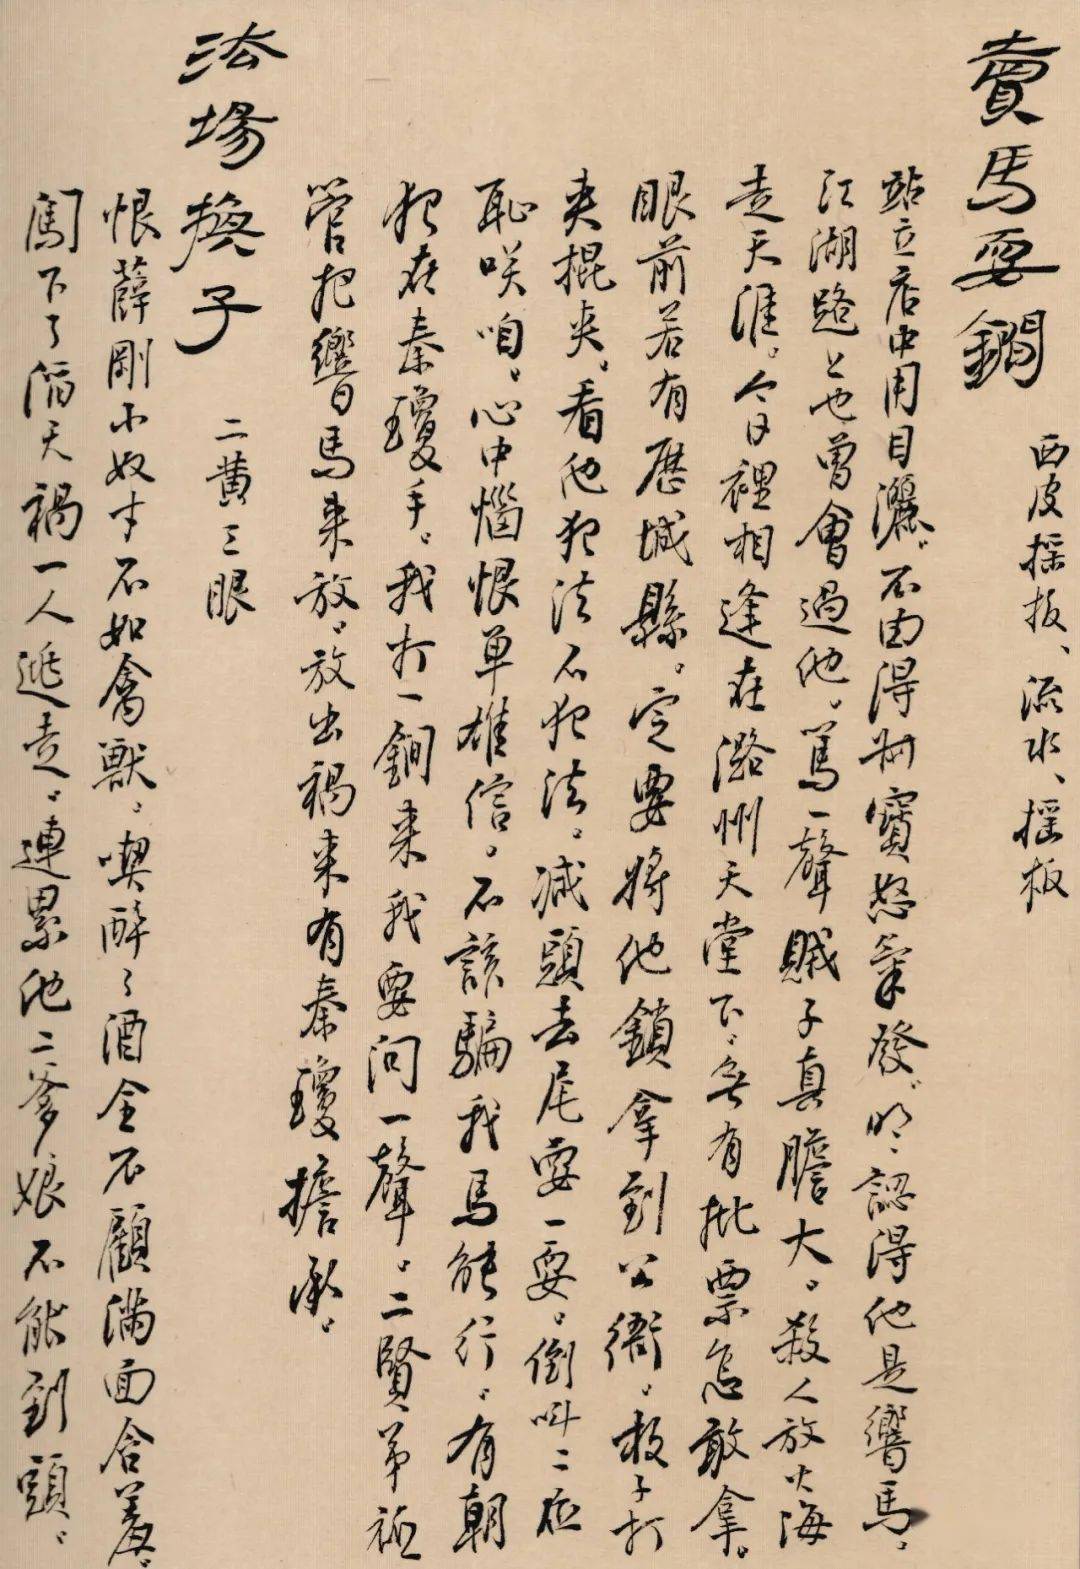 賣馬耍鐧
西皮搖板、流水、搖板
站立店中用目灑。不由得叔寶怒氣發。明明認得他是響馬。
江湖路上也曾會過他。罵一聲賊子真膽大。殺人放火海
走天涯。今日裡相逢在潞州天堂下。無有批票怎敢拿。
眼前若有歷城縣。定要將他鎖拿到公衙。板子打
夾棍夾。看他犯法不犯法。減頭去尾耍一耍。倒叫二位
恥咲咱。心中惱恨單雄信。不該騙我馬能行。有朝
犯在秦瓊手。我打一鐧來我要問一聲。二賢弟祗
管把響馬來放。放出禍來有秦瓊擔承。
法場換子
二黃三眼
恨薛剛小奴才不如禽獸。喫醉了酒全不顧滿面含羞。
闖下了滔天禍一人逃走。連累他二爹娘不能到頭。